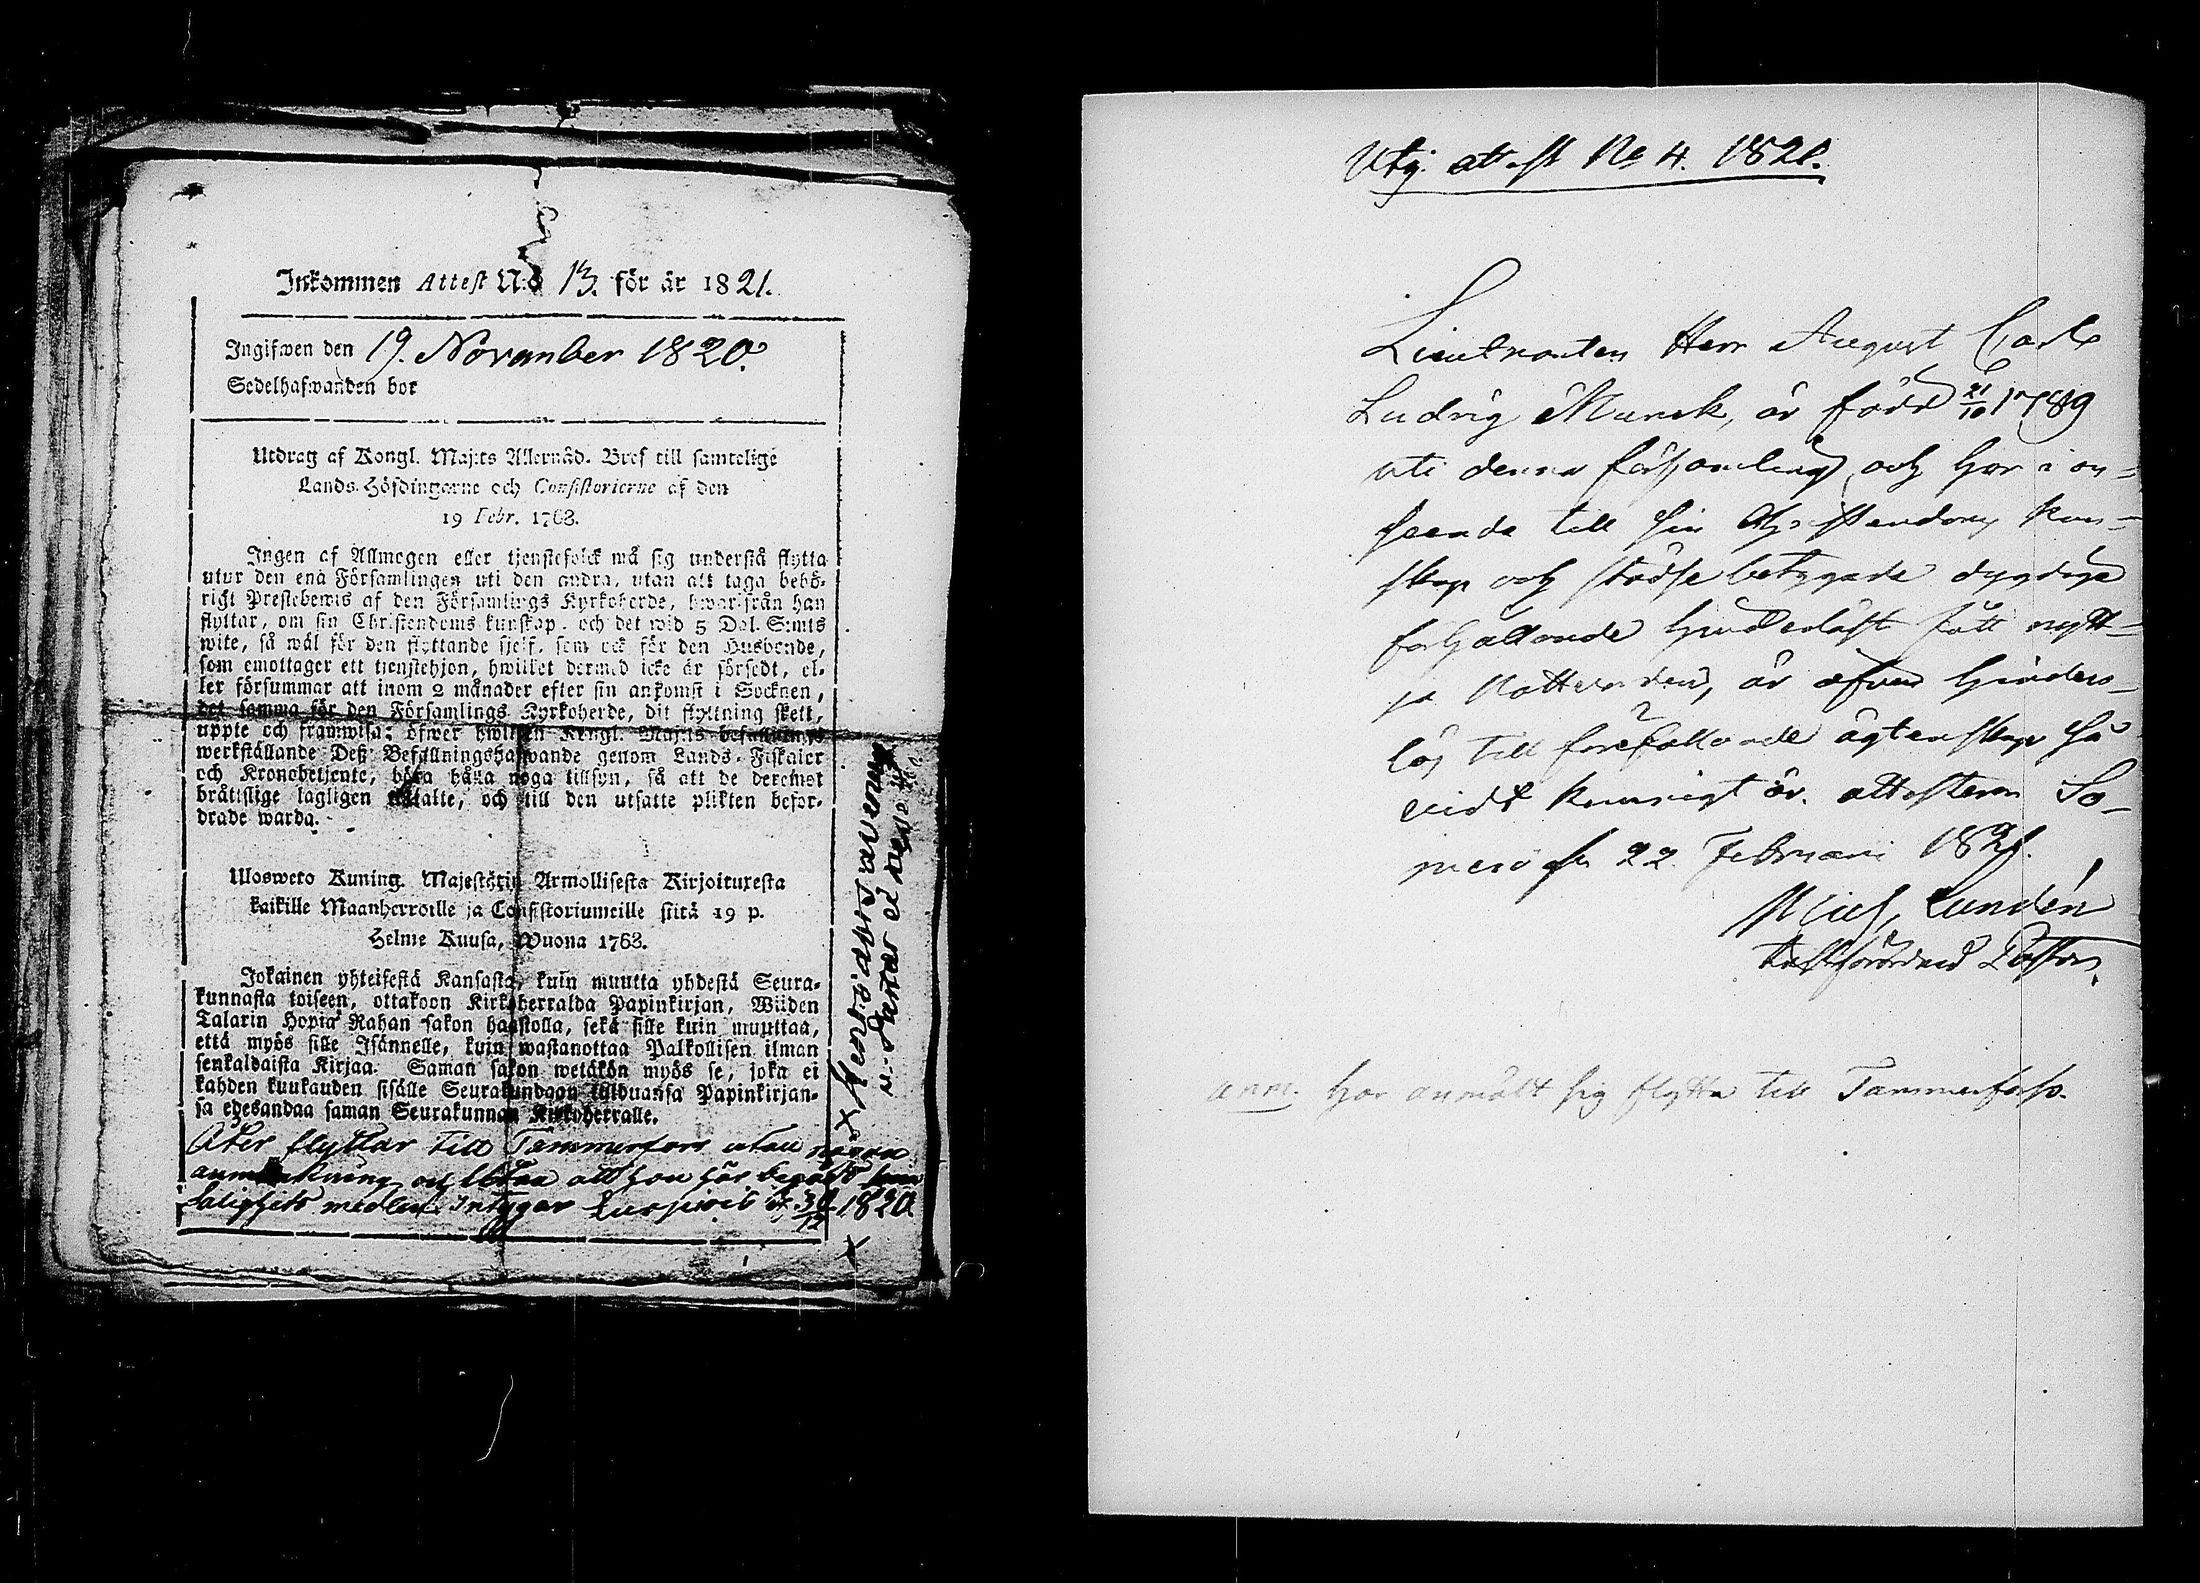 Inkommen Attest N:o 13. för år 1821.
Ingifwen den 19. November 1820.
Sedelhafwanden bor
Utdrag af Kongl. Maj:ts Allernåd. Bref till samtelige
Lands-Höfdingarne och Consistorierne af den
19 Febr. 1768.
Ingen af Allmogen eller tjenstefolck må sig understå flytta
utur den ena Församlingen uti den andra, utan att taga behö-
rigt Prestebewis af den Församlings Kyrkoherde, hwarifrån han
flyttar, om sin Christendoms kunskap, och det wid 5 Dal. S:mts
wite, så wäl för den flyttande sjelf, som ock för den Husbonde,
som emottager ett tjenstehjon, hwilket dermed icke är försedt, el-
ler försummar att inom 2 månader efter sin ankomst i Socknen,
det samma för den Församlings Kyrkoherde, dit flyttning skett,
uppte och framwisa; öfwer hwilken Kongl. Maj:ts befallnings
werkställande Deß Befallningshafwande genom Lands-Fiskaler
och Kronobetjente, böra hålla noga tillsyn, så att de deremot
bråttslige lagligen tilltalte, och till den utsatte plikten befor-
drade warda.
Ulosweto Kuning. Majestätin Armollisesta Kirjoituxesta
kaikille Maanherroille ja Consistoriumeille siitä 19 p.
Helme Kuusa, Wuona 1768.
Jokainen yhteisestä Kansasta, kuin muutta yhdestä Seura-
kunnasta toiseen, ottakoon Kirkkoherralda Papinkirjan, Wiiden
Talarin Hopia Rahan sakon haastolla, sekä sille kuin muuttaa,
että myös sille Isännelle, kuin wastanottaa Palkollisen ilman
senkaldaista Kirjaa. Saman sakon wetäkön myös se, joka ei
kahden kuukauden sisälle Seurakundaan tulduansa Papinkirjan-
sa edesandaa saman Seurakunnan Kirkkoherralle.
Åter flyttar till Tammerfors utan någon
anmärkning och utan att hon här begått sina
Salighets medlen. Intygar d. 30/12 1820
Utg. attest No 4. 1821.
Lieutnanten Herr August Carl
Ludvig Munck, är född 21/10 1789
uti denna församling och har i an-
seende till sin Christendoms kun-
skap och städse betygade dygdiga
förhållande hinderlöst fått nytt-
ja Nattvarden, är äfven hinders-
lös till förefallande ägtenskap så
vidt kunnigt är. attesteras So-
mero d. 22 Februari 1821.
Lundén
Pastor.
anm. har anmält sig flytta till Tammerfors.